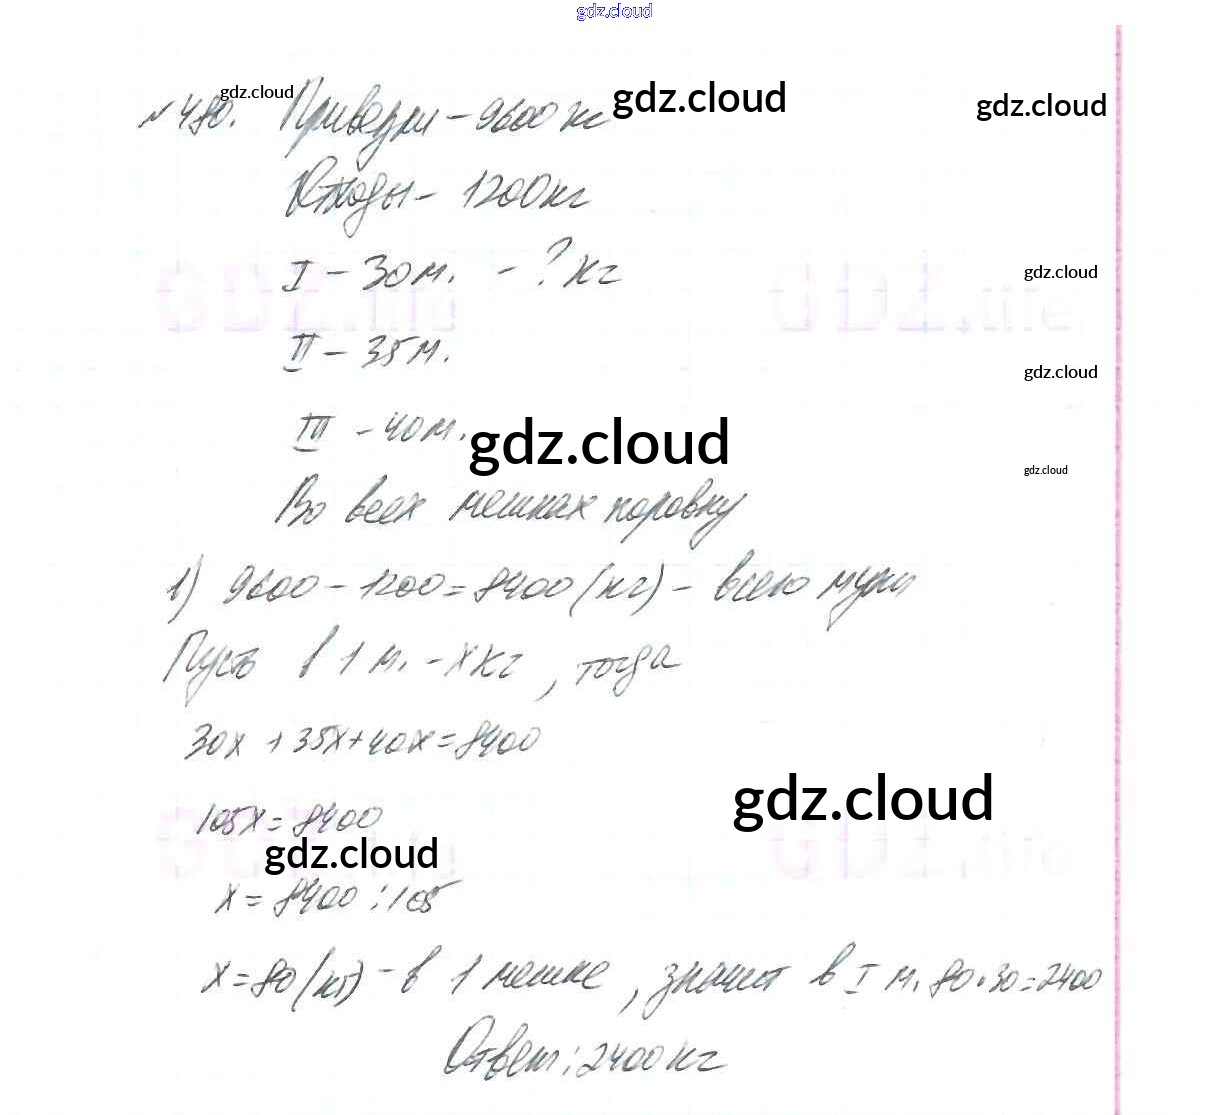 gdz.cloud
№480. Привезли – 9600 кг
gdz.cloud
gdz.cloud
gdz.cloud
Отходы – 1200 кг
I – 30 м. – ? кг
gdz.cloud
GDZ.me
GDZ.me
II – 35 м.
gdz.cloud
III – 40 м.
gdz.cloud
gdz.cloud
Во всех мешках поровну
1) 9600 – 1200 = 8400 (кг) – всего муки
Пусть в 1 м. – x кг, тогда
30x + 35x + 40x = 8400
gdz.cloud
105x = 8400
gdz.cloud
GDZ.me
GDZ.me
x = 8400 : 105
x = 80 (кг) – в 1 мешке, значит в I м. 80 • 30 = 2400
Ответ: 2400 кг